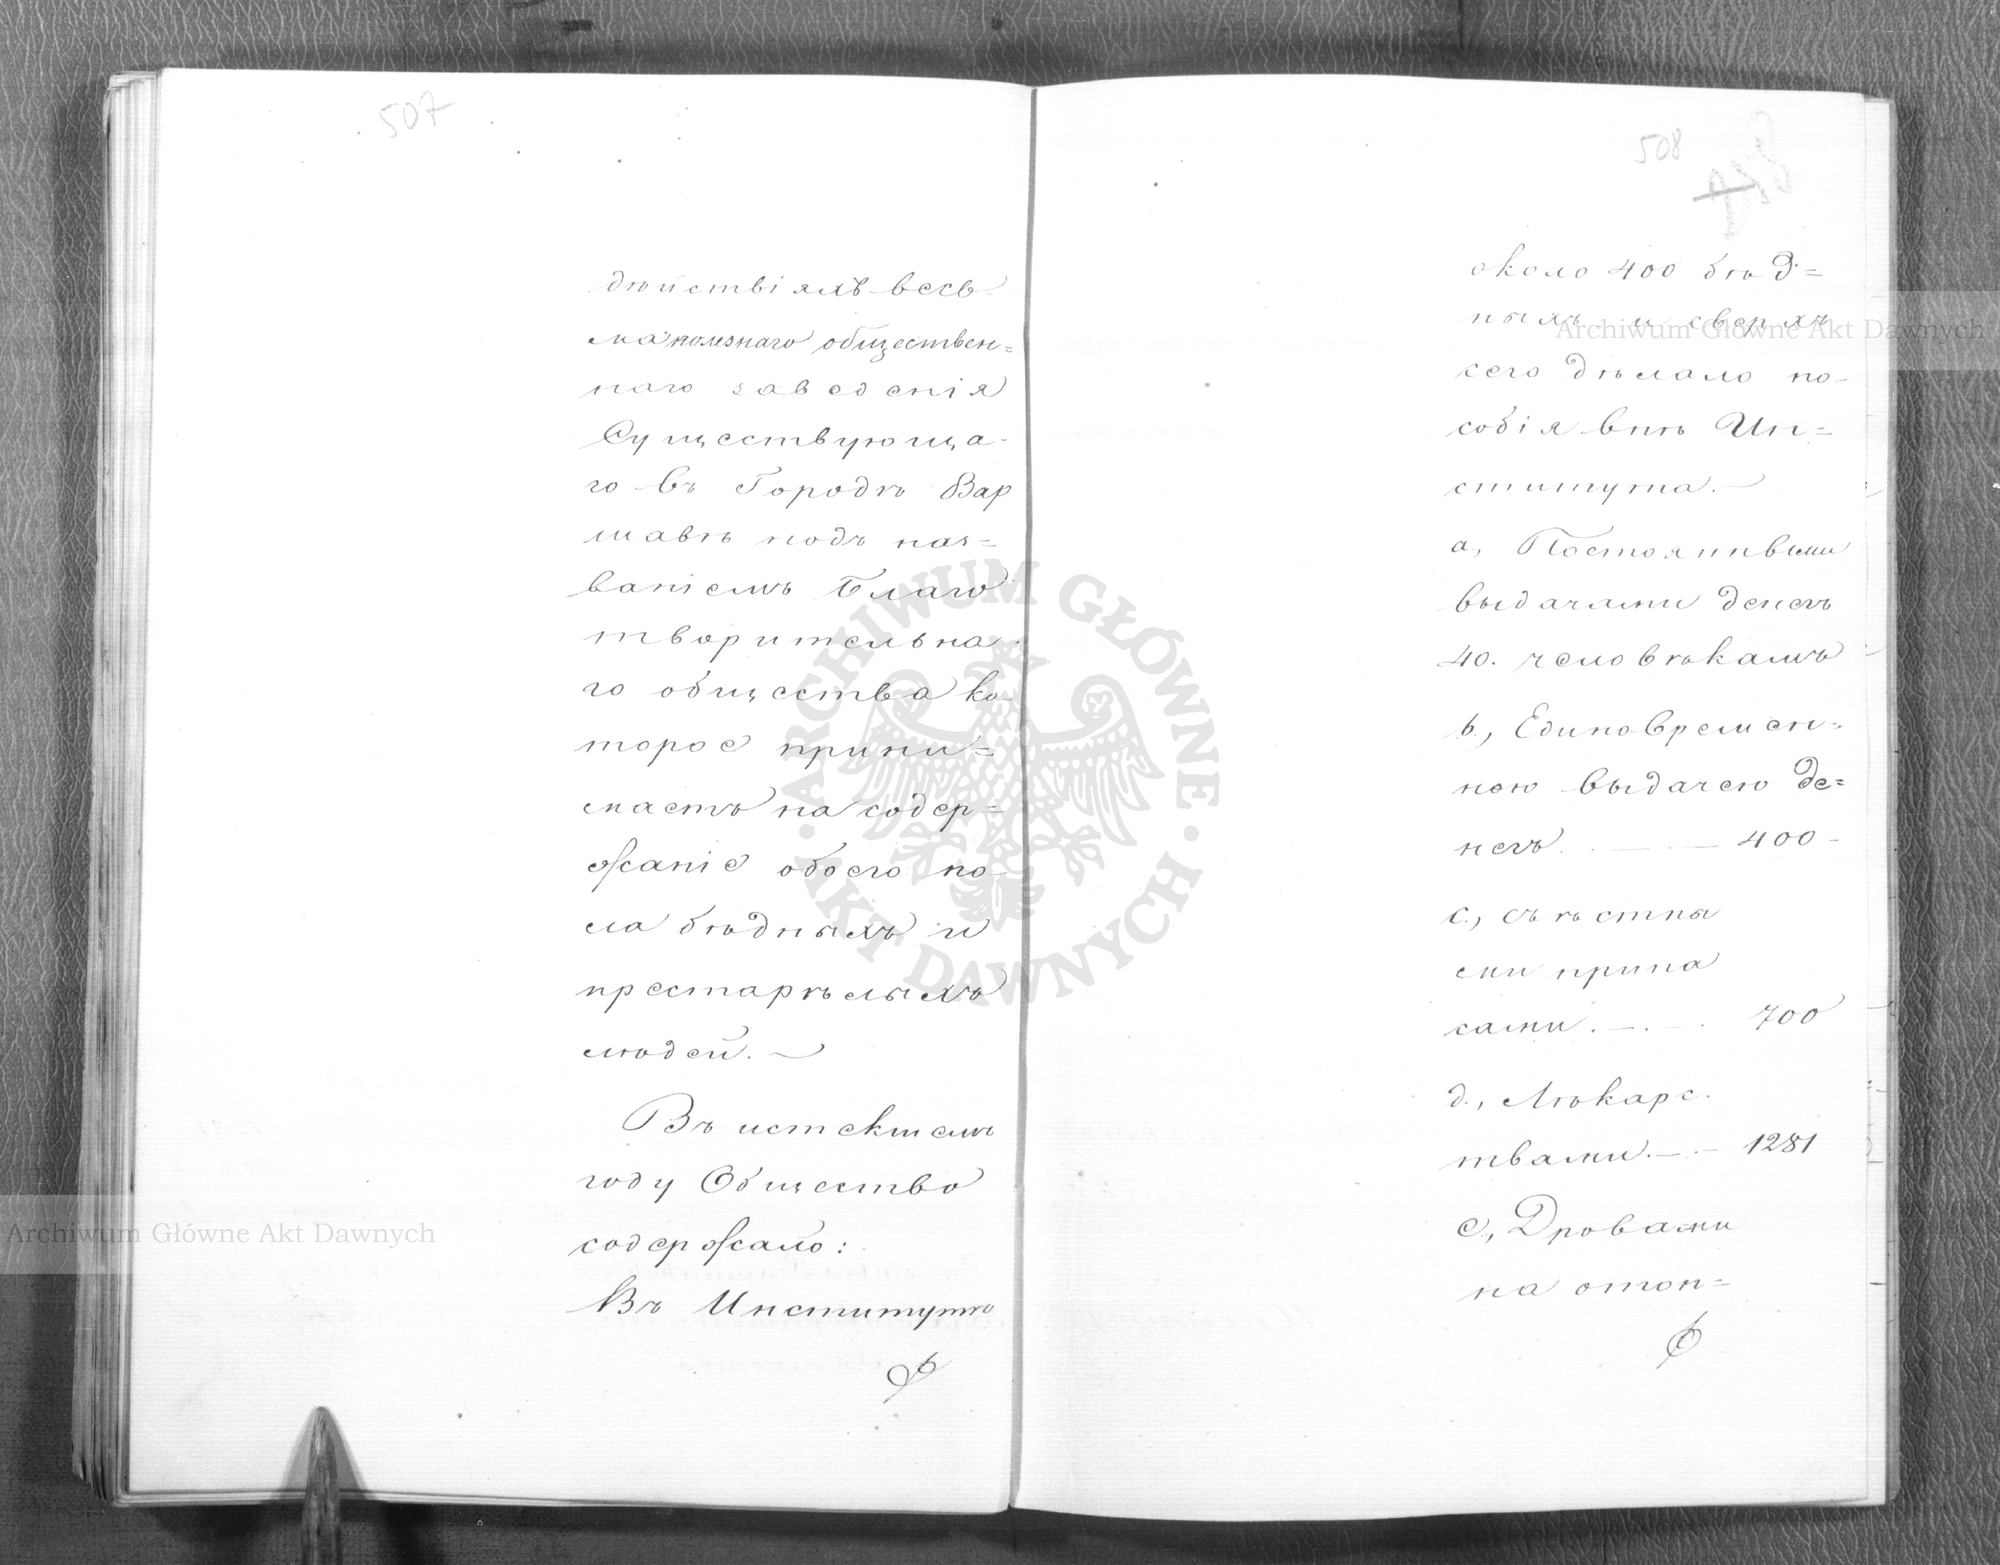 507
дѣйствіямъ весь
ма полезнаго обществен=
наго заведенія
Существующа-
го въ Городѣ Вар
шавѣ подъ наз=
ваніемъ Благо
творительна
го общества ко-
торое прини=
маетъ на содер=
жаніе обоего по-
ла бѣдныхъ и
престарѣлыхъ
людей. —
Въ истекшемъ
году Общество
содержало:
Въ Институтѣ
508
около 400 бѣд=
ныхъ и сверхъ
сего дѣлало по-
собія внѣ Ин=
ститута. —
а., Постоянными
выдачами денегъ
40. человѣкамъ
b., Единовремен=
ною выдачею де=
негъ . — — 400 -
c., съѣстны
ми припа
сами . — . — . 700
d., Лѣкарс.
твами. — . — 1281
e., Дровами
на отоп=
Archiwum Główne Akt Dawnych
Archiwum Główne Akt Dawnych
ARCHIWUM GŁÓWNE
AKT DAWNYCH